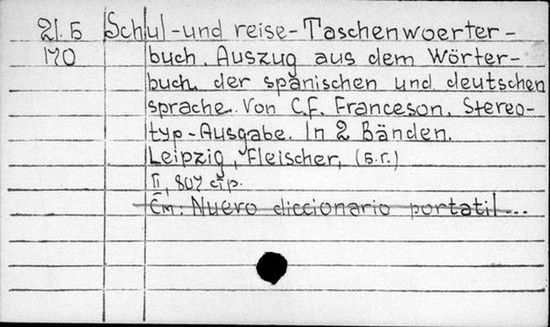 21.5 Schul-und reise-Taschenwoerter-
170 buch. Auszug aus dem Wörter-
buch der spanischen und deutschen
sprache. Von C.F. Franceson. Stereo-
typ-Ausgabe. In 2 Bänden.
Leipzig, Fleischer, (б.г.)
II, 807 стр.
См: Nuevo diccionario portatil...